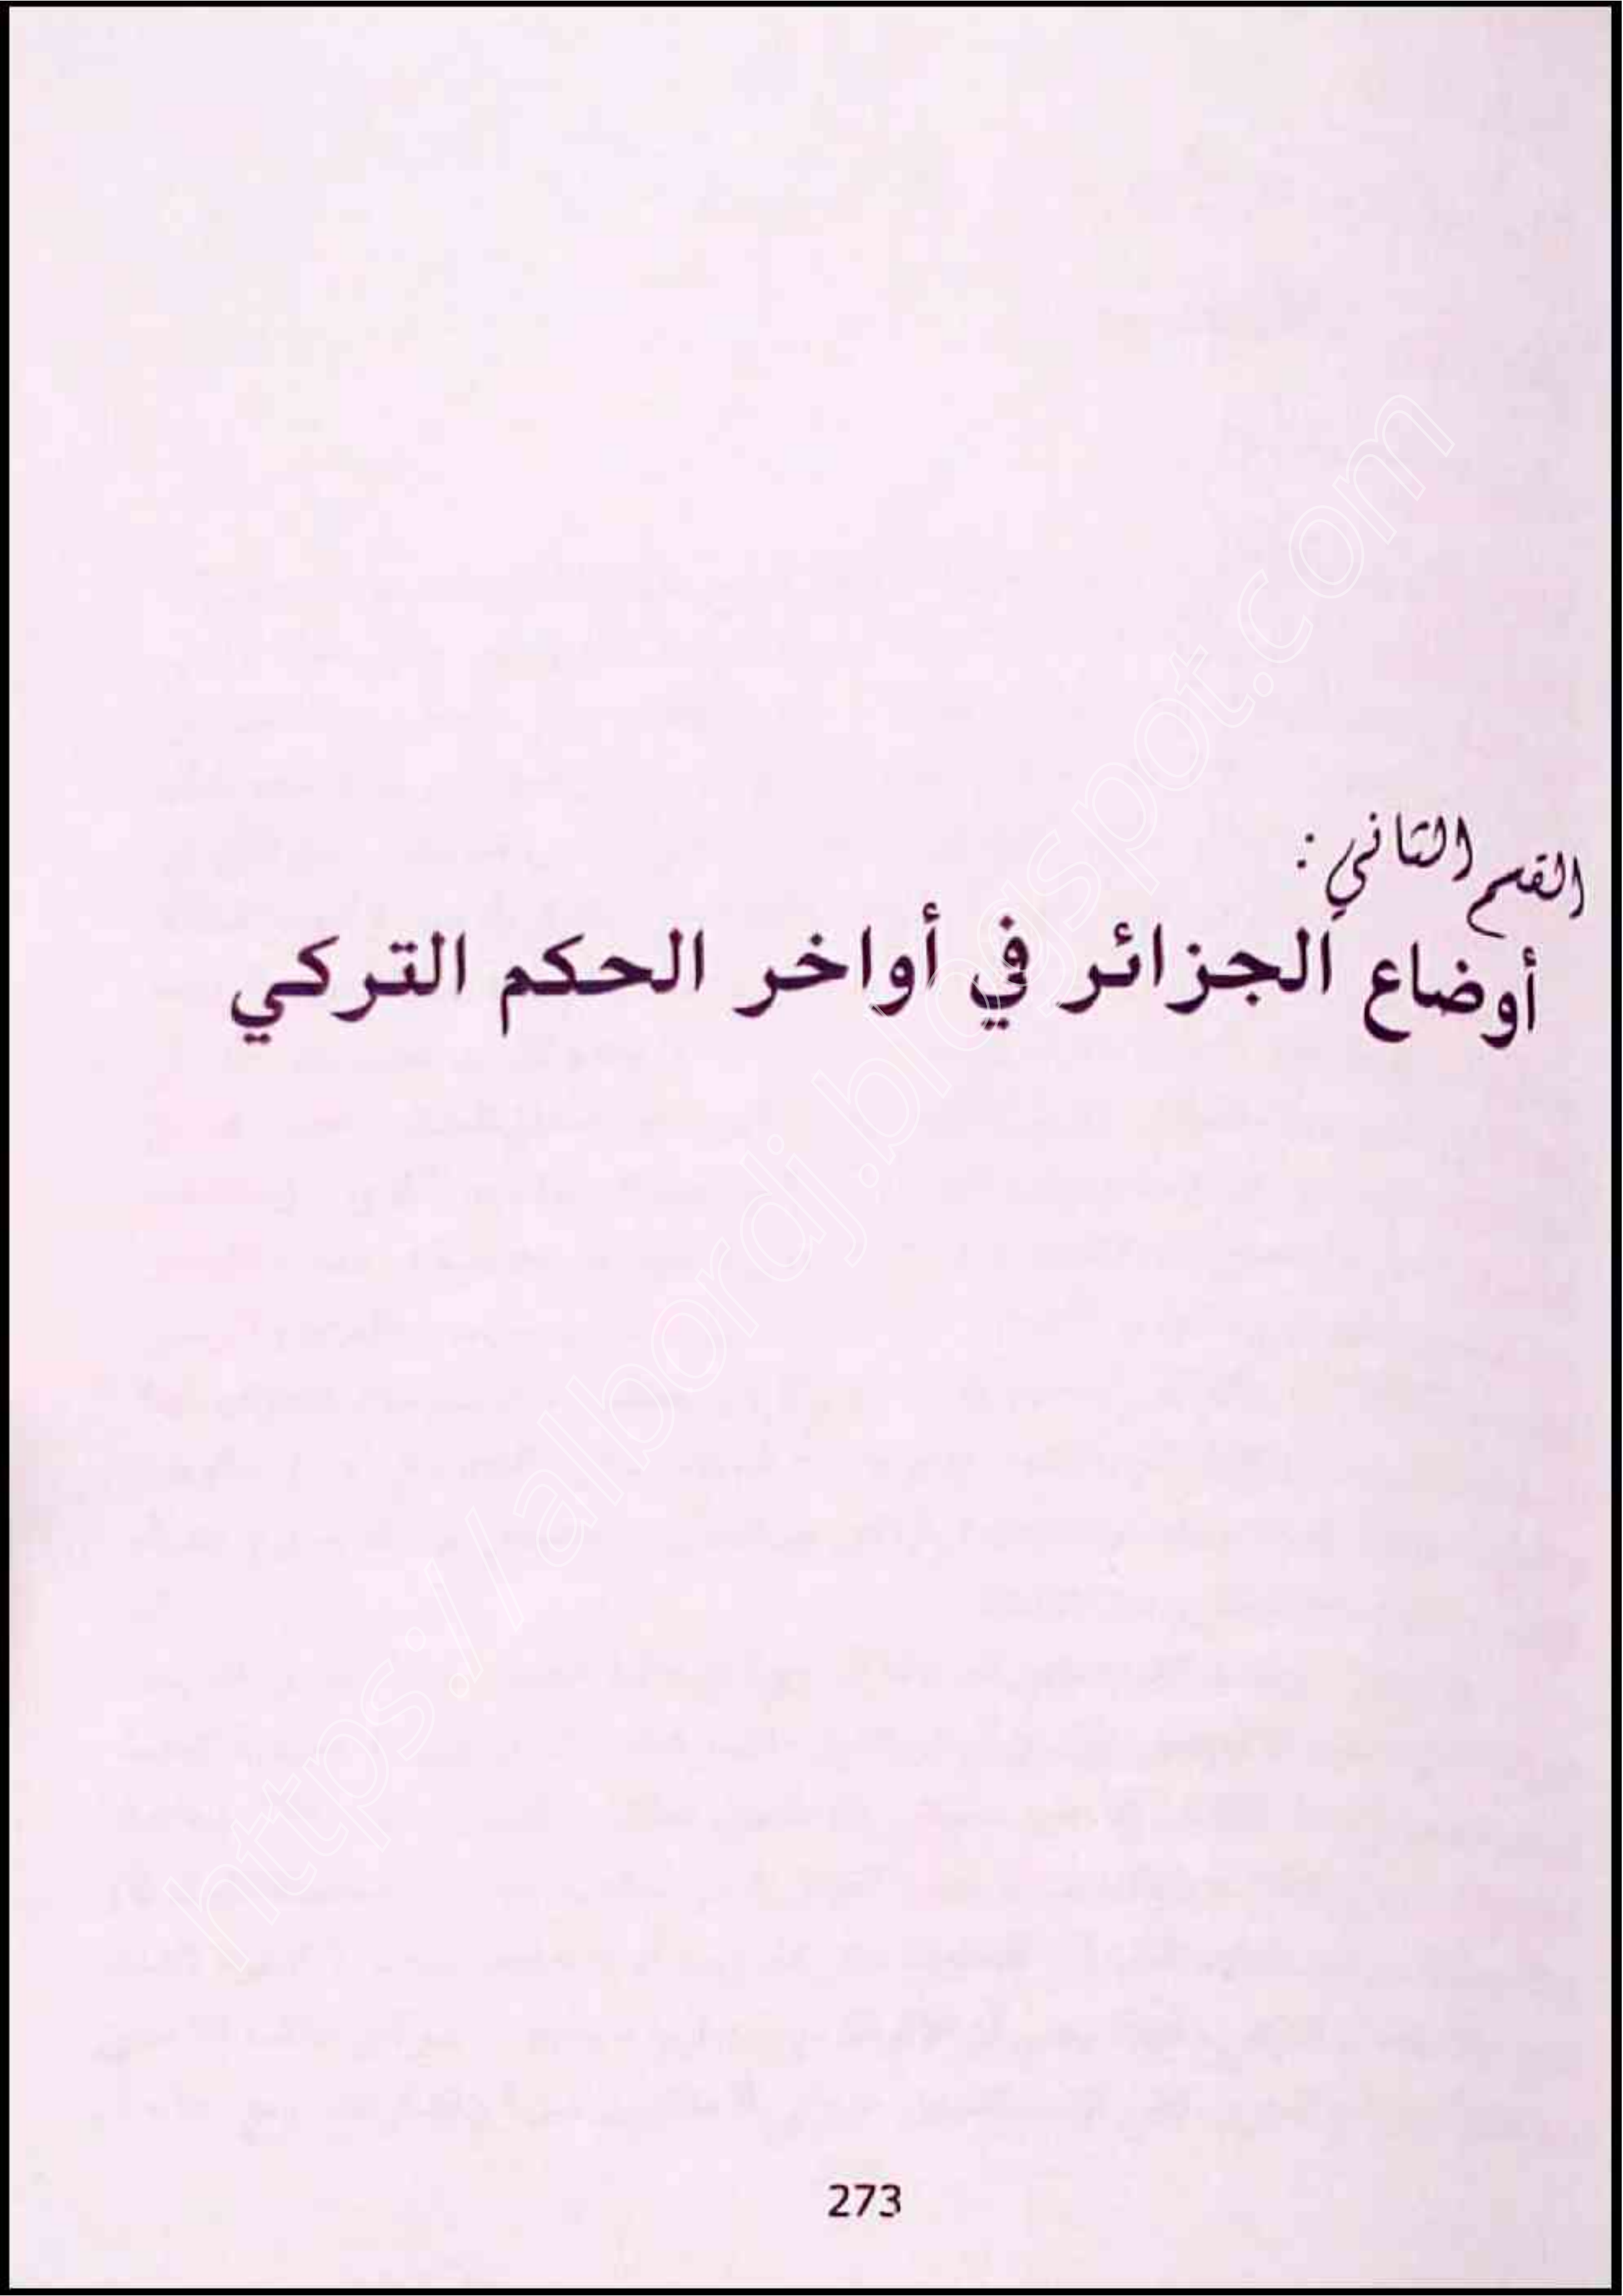 القسم الثاني :
أوضاع الجزائر في أواخر الحكم التركي
https://albordj.blogspot.com
273